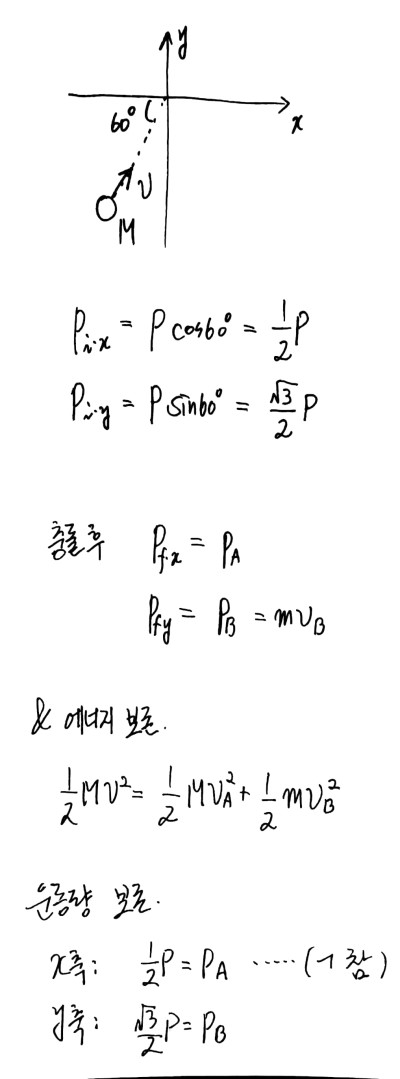 y
60°
x
υ
M
P_{i·x} = P cos60° = \frac{1}{2}P
P_{i·y} = P sin60° = \frac{√3}{2}P
충돌후 P_{f·x} = P_A
P_{fy} = P_B = mυ_B
& 에너지 보존.
\frac{1}{2}Mυ² = \frac{1}{2}Mυ_A² + \frac{1}{2}mυ_B²
운동량 보존.
x축: \frac{1}{2}P = P_A ····· (ㄱ 참)
y축: \frac{√3}{2}P = P_B